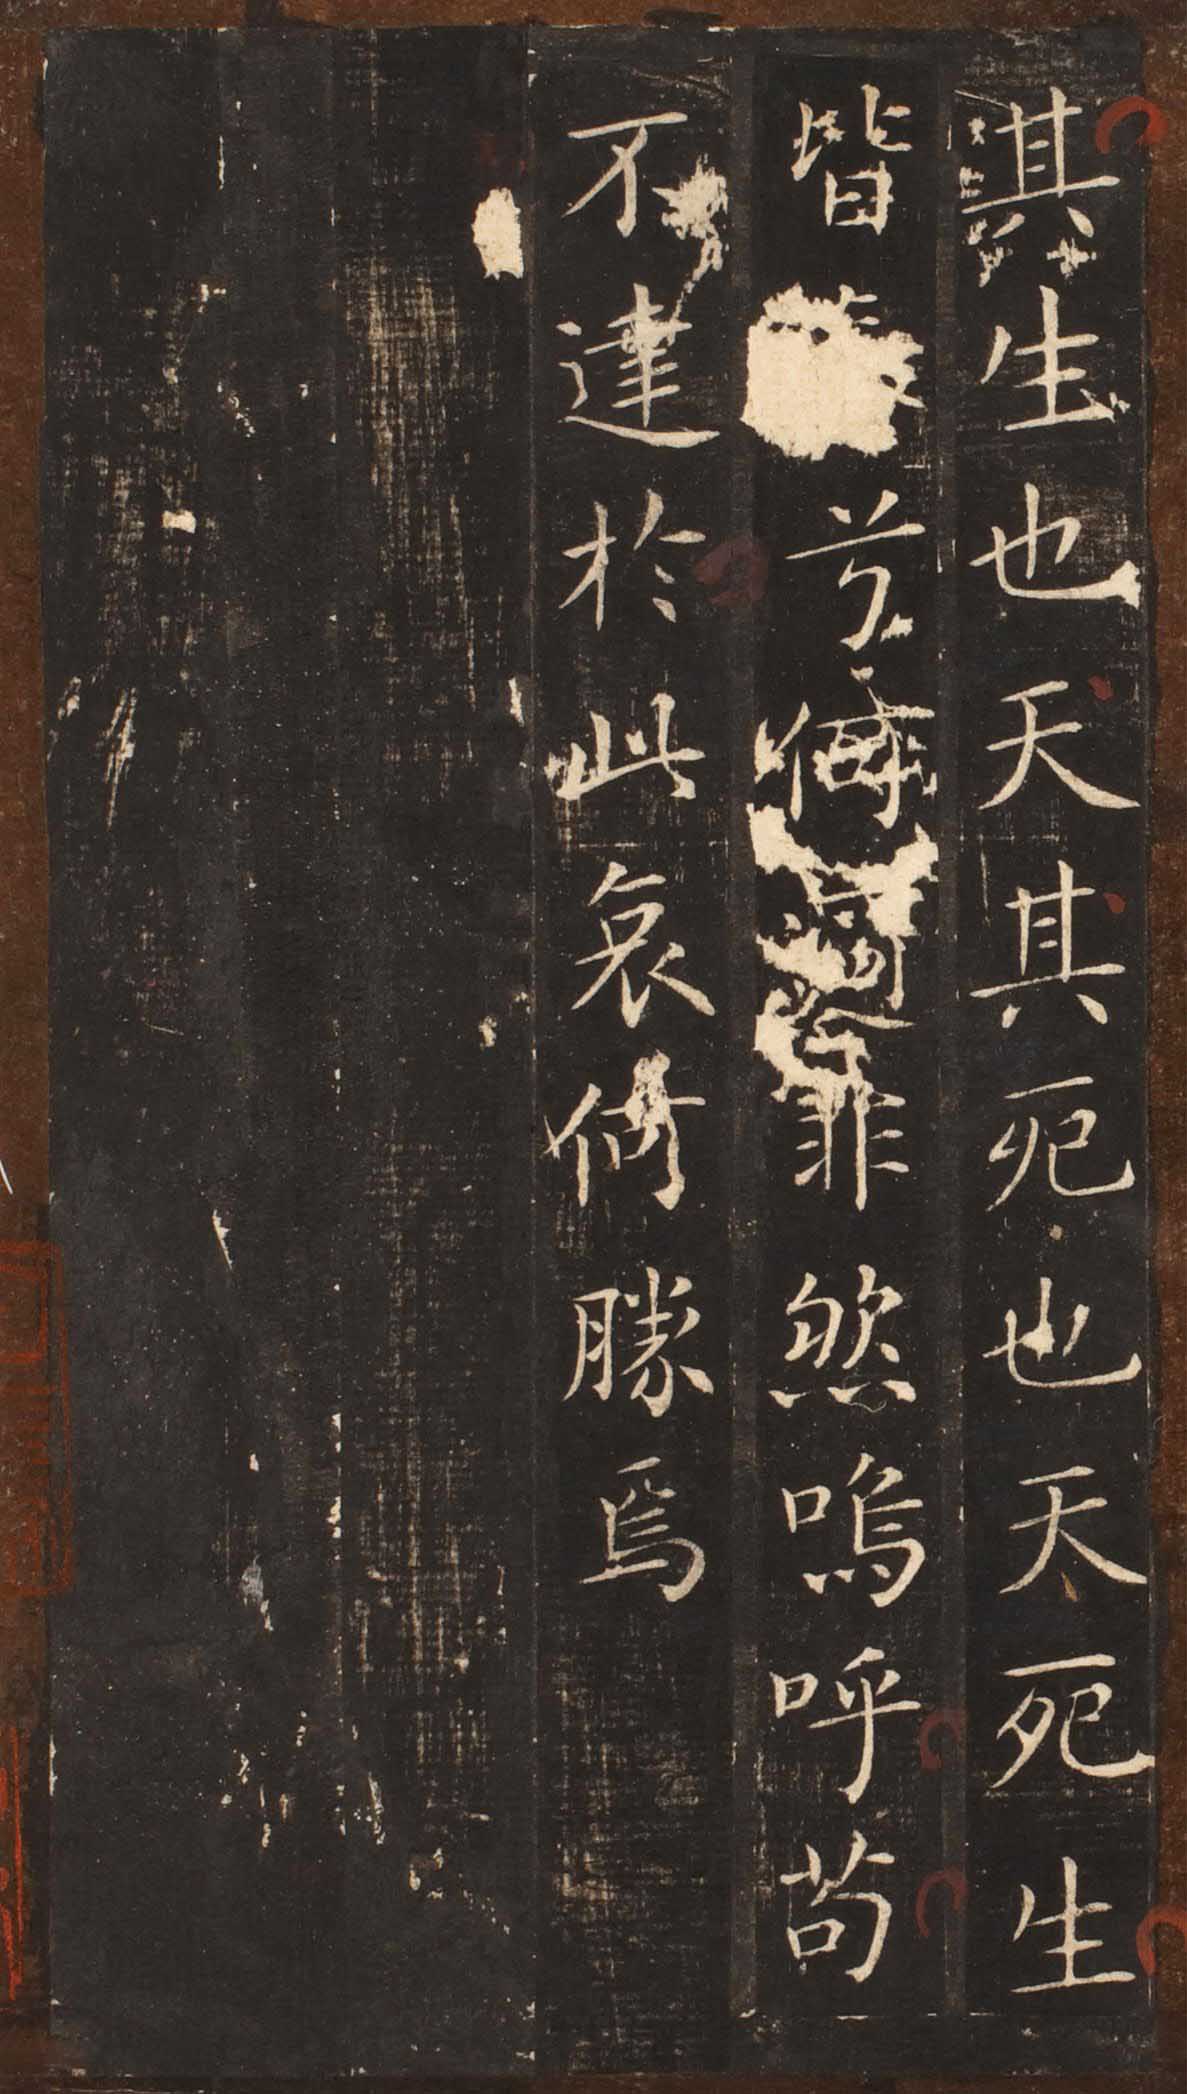 其生也天其死也天死生
皆兮何罪然嗚呼苟
不達於此哀何勝焉